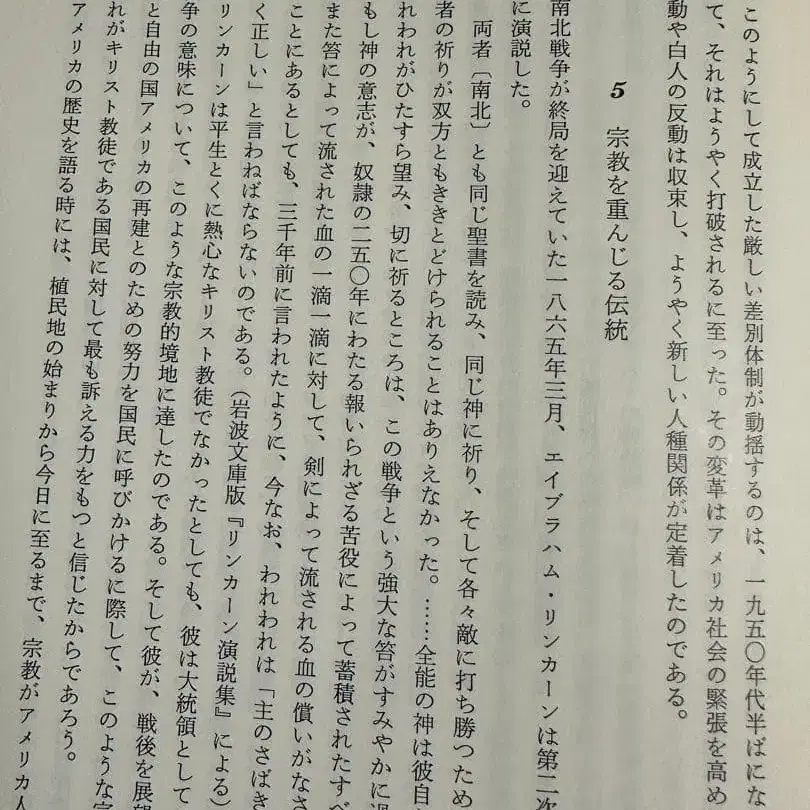 このようにして成立した厳しい差別体制が動揺するのは、一九五〇年代半ばにな
て、それはようやく打破されるに至った。その変革はアメリカ社会の緊張を高め
動や白人の反動は収束し、ようやく新しい人種関係が定着したのである。
5 宗教を重んじる伝統
南北戦争が終局を迎えていた一八六五年三月、エイブラハム・リンカーンは第二次
に演説した。
両者〔南北〕とも同じ聖書を読み、同じ神に祈り、そして各々敵に打ち勝つため
者の祈りが双方ともききとどけられることはありえなかった。……全能の神は彼自
れわれがひたすら望み、切に祈るところは、この戦争という強大な笞がすみやかに過
もし神の意志が、奴隷の二五〇年にわたる報いられざる苦役によって蓄積されたすべ
また笞によって流された血の一滴一滴に対して、剣によって流される血の償いがなさ
ことにあるとしても、三千年前に言われたように、今なお、われわれは「主のさばき
く正しい」と言わねばならないのである。(岩波文庫版『リンカーン演説集』による)
リンカーンは平生とくに熱心なキリスト教徒でなかったとしても、彼は大統領として
争の意味について、このような宗教的境地に達したのである。そして彼が、戦後を展望
と自由の国アメリカの再建とのための努力を国民に呼びかけるに際して、このような宗
れがキリスト教徒である国民に対して最も訴える力をもつと信じたからであろう。
アメリカの歴史を語る時には、植民地の始まりから今日に至るまで、宗教がアメリカ人